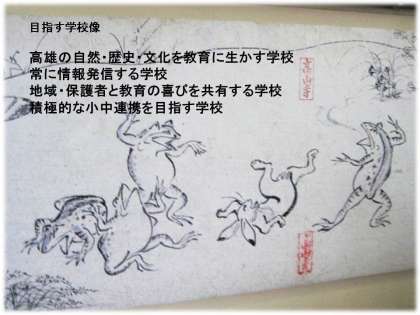 目指す学校像
高雄の自然・歴史・文化を教育に生かす学校
常に情報発信する学校
地域・保護者と教育の喜びを共有する学校
積極的な小中連携を目指す学校